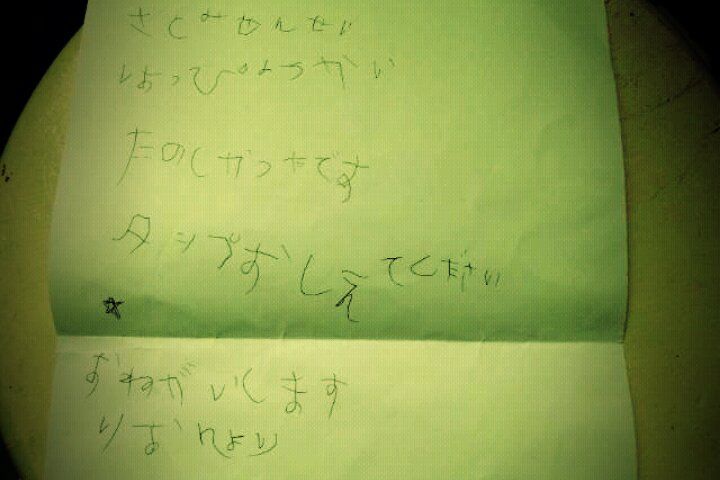 さくみせんせい
はっぴょうかい
たのしかったです
タップおしえてください
☆
おねがいします
りおんより